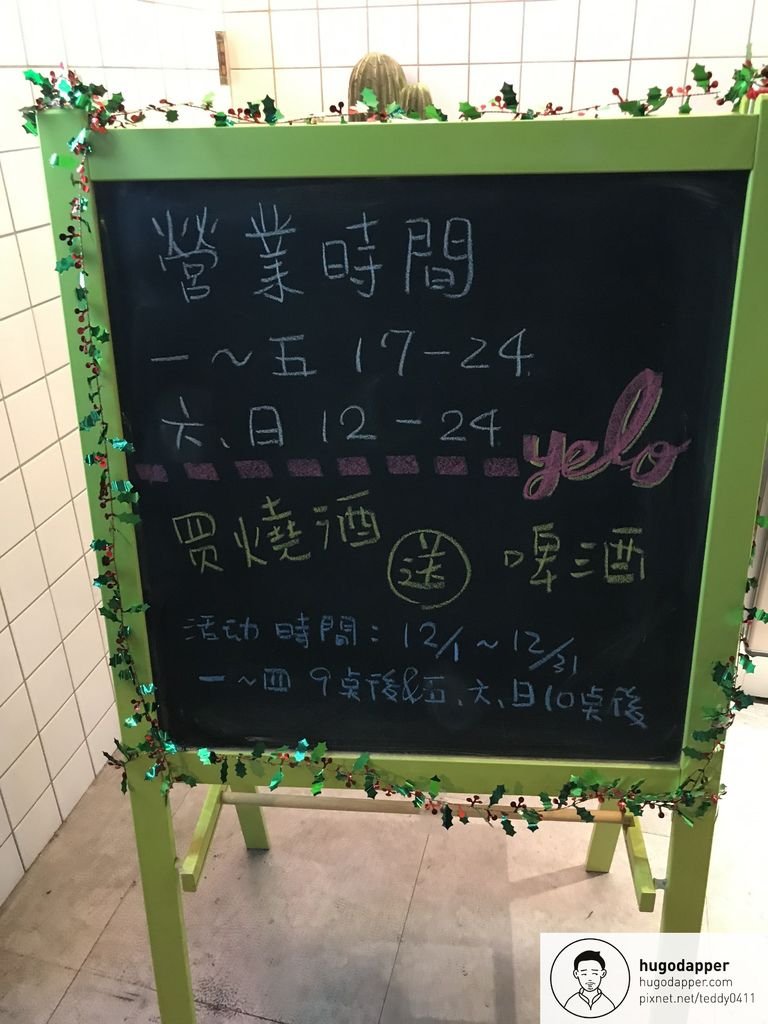 營業時間
一～五 17-24
六、日 12-24
yelo
買燒酒 送 啤酒
活动時間：12/1～12/31
一～四 9桌後&五、六、日10桌後
hugodapper
hugodapper.com
pixnet.net/teddy0411